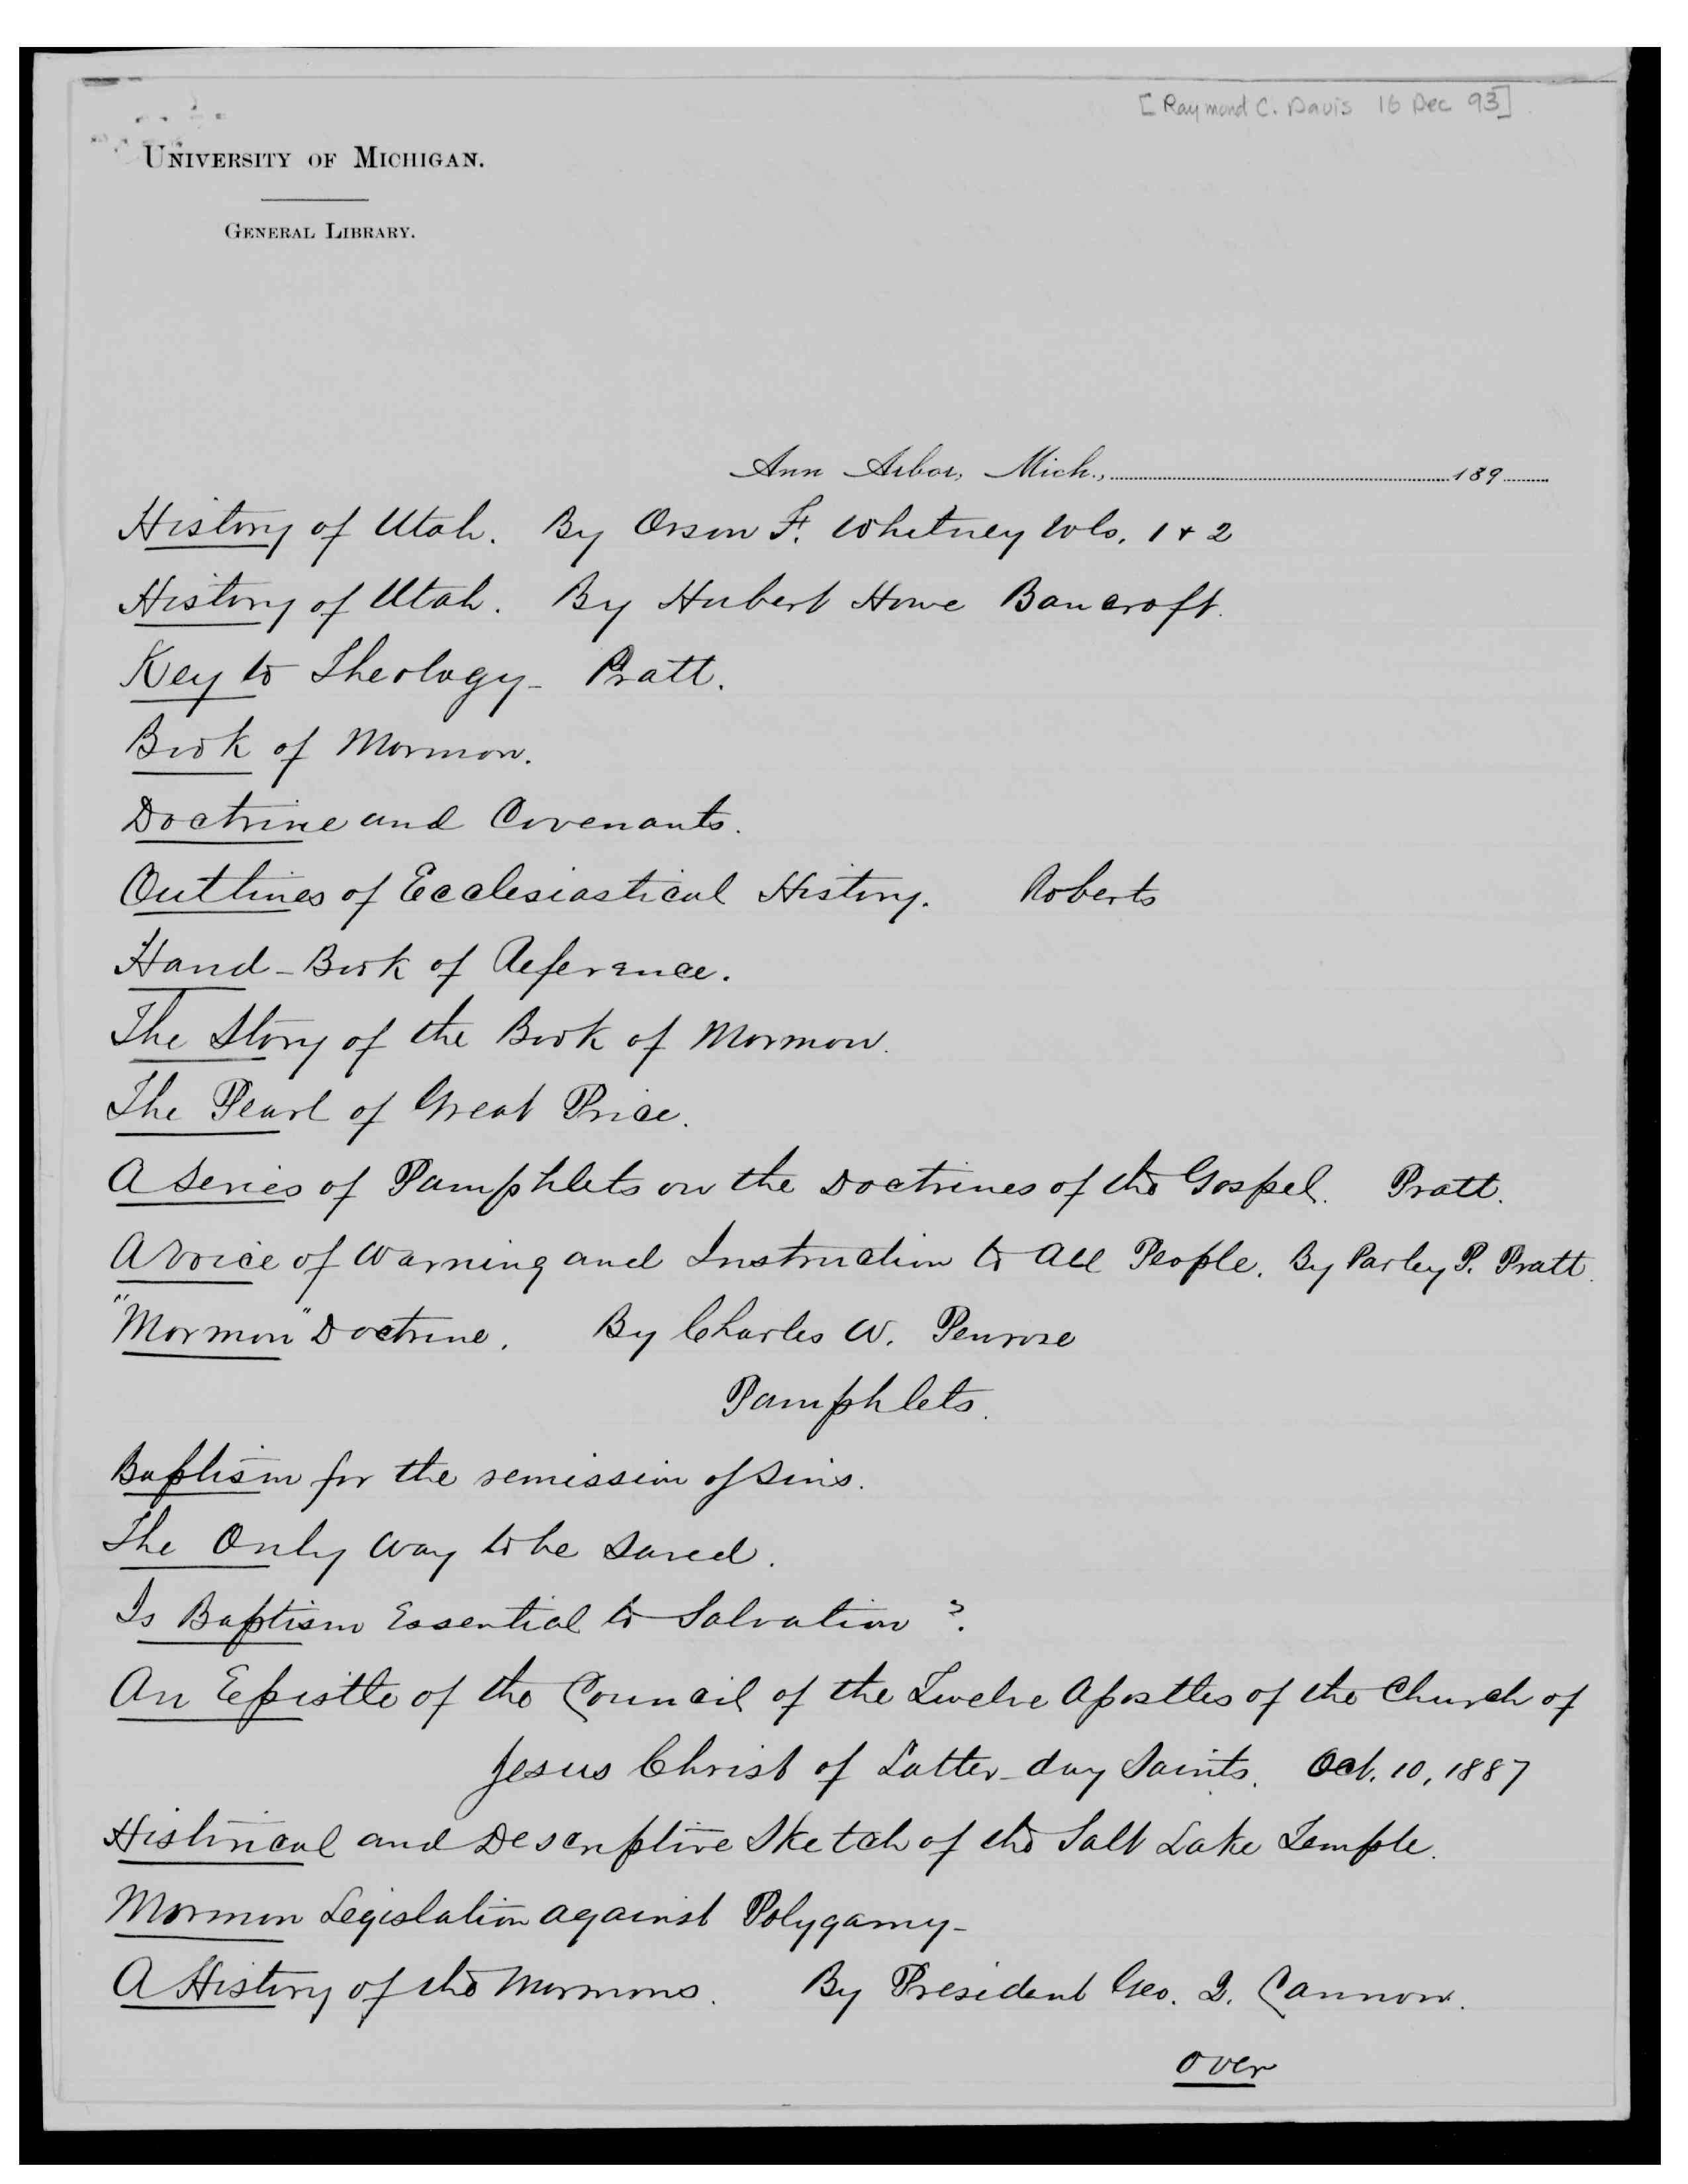 [Raymond C. Davis 16 Dec 93]
UNIVERSITY OF MICHIGAN.
GENERAL LIBRARY.
Ann Arbor, Mich., 189
History of Utah. By Orson F. Whitney Vols. 1 + 2
History of Utah. By Hubert Howe Bancroft.
Key to Theology - Pratt.
Book of Mormon.
Doctrine and Covenants.
Outlines of Ecclesiastical History. Roberts
Hand-Book of Reference.
The Story of the Book of Mormon.
The Pearl of Great Price.
A Series of Pamphlets on the Doctrines of the Gospel. Pratt.
A Voice of Warning and Instruction to All People. By Parley P. Pratt.
"Mormon" Doctrine. By Charles W. Penrose
Pamphlets.
Baptism for the remission of Sins.
The Only Way to be Saved.
Is Baptism Essential to Salvation?
An Epistle of the Council of the Twelve Apostles of the Church of
Jesus Christ of Latter-day Saints. Oct. 10, 1887
Historical and Descriptive Sketch of the Salt Lake Temple.
Mormon Legislation against Polygamy-
A History of the Mormons. By President Geo. Q. Cannon.
over